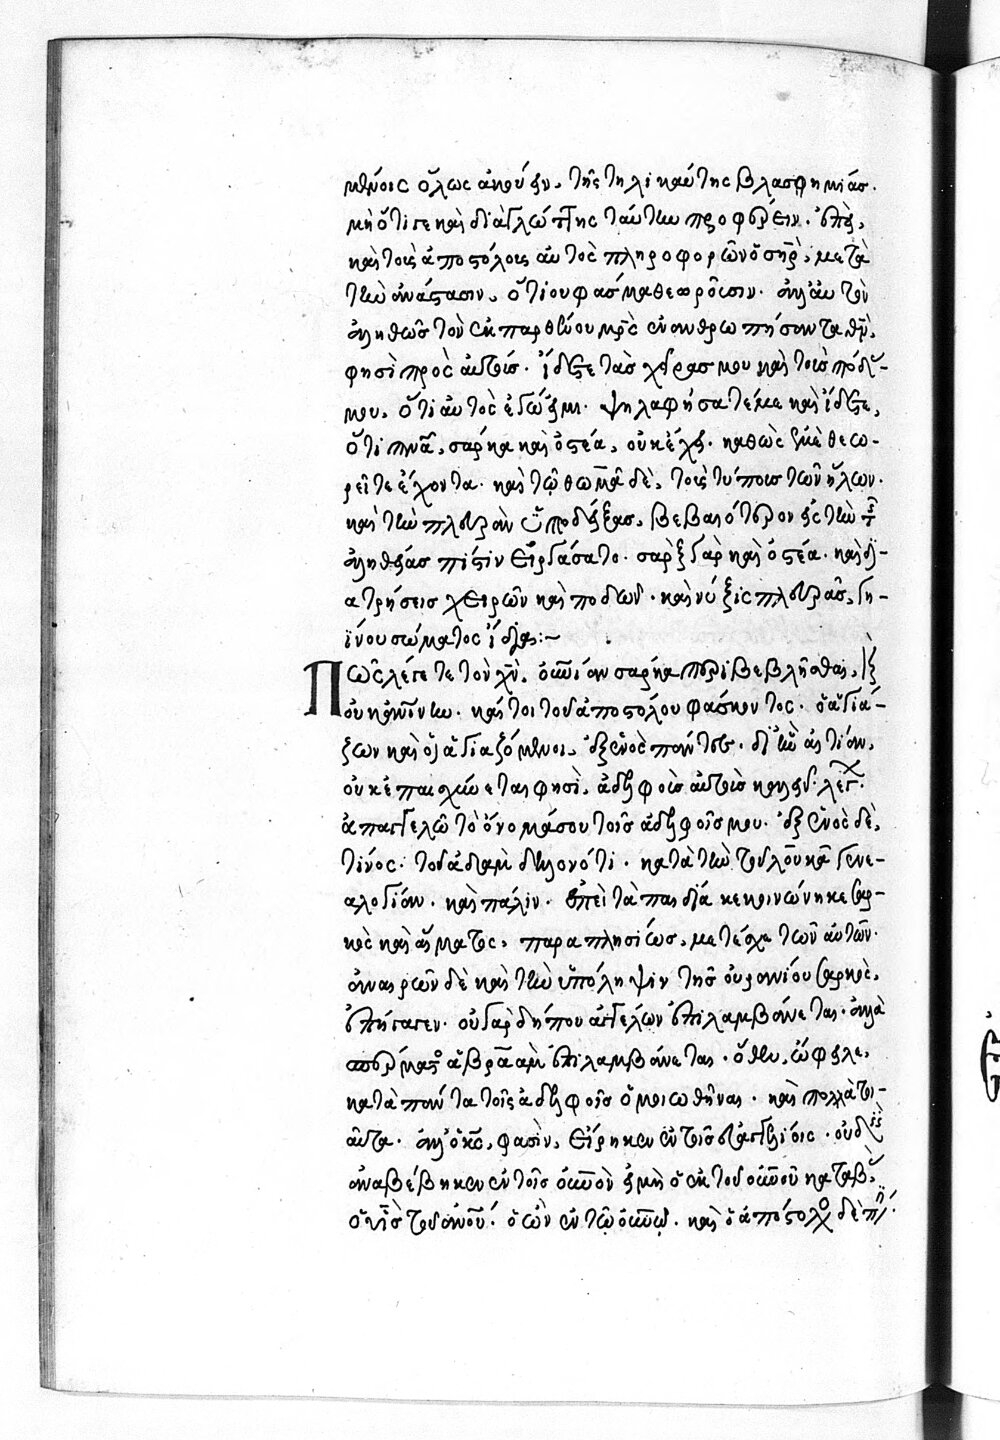 μένοις ὅλως ἀκούειν. τῆς τηλικαύτης βλασφημίας.
μὴ ὅτι γε καὶ διὰ γλώττης ταύτην προφέρειν. ἐπεὶ,
καὶ τοῖς ἀποστόλοις αὐτὸς πληροφορῶν ὁ σὴρ, μετὰ
τὴν ἀνάστασιν, ὅτι οὐ φάσμα θεωροῦσιν. ἀλλ' αὐτὸν
ἀληθῶς τὸν ἐκ παρθένου μρὸς ἐνανθρωπήσαντα θν,
φησὶ πρὸς αὐτούς. ἴδετε τὰς χεῖράς μου καὶ τοὺς πόδας
μου. ὅτι αὐτὸς ἐγώ εἰμι. ψηλαφήσατέ με καὶ ἴδετε,
ὅτι πνα, σάρκα καὶ ὀστέα, οὐκ ἔχει. καθὼς ἐμὲ θεω-
ρεῖτε ἔχοντα. καὶ τῷ θωμᾶ δὲ, τοὺς τύπους τῶν ἥλων.
καὶ τὴν πλευρὰν ὑποδείξας, βεβαιότερον εἰς τὴν τ
ἀληθείας πίστιν εἰργάσατο. σὰρξ γὰρ καὶ ὀστέα. καὶ δι-
ατρήσεις χειρῶν καὶ ποδῶν. καὶ νύξις πλευρᾶς, γη-
ΐνου σώματος ἴδια:~
Πῶς λέγετε τὸν χν, οὐνίαν σάρκα περιβεβλῆσθαι, ἐξ
οὐκ ανων. καί τοι τοῦ ἀποστόλου φάσκοντος. ὁ ἁγιά-
ζων καὶ οἱ ἁγιαζόμενοι, ἐξ ἑνὸς πάντες. δι' ἣν αἰτίαν,
οὐκ ἐπαισχύνεται φησὶ, ἀδελφοὺς αὐτοὺς καλεῖν. λέγ.
ἀπαγγελῶ τὸ ὄνομά σου τοῖς ἀδελφοῖς μου. ἐξ ἑνὸς δὲ,
τίνος. τοῦ ἀδὰμ δηλονότι. κατὰ τὴν τοῦ λουκᾶ γενε-
αλογίαν. καὶ πάλιν. ἐπεὶ τὰ παιδία κεκοινώνηκε σαρ-
κὸς καὶ αἵματος, παραπλησίως, μετέσχε τῶν αὐτῶν.
ἀναιρῶν δὲ καὶ τὴν ὑπόληψιν τῆς οὐρανίου σαρκὸς,
ἐπήγαγεν. οὐ γὰρ δήπου ἀγγέλων ἐπιλαμβάνεται. ἀλλὰ
σπέρματος ἀβραὰμ ἐπιλαμβάνεται. ὅθεν, ὤφειλε,
κατὰ πάντα τοῖς ἀδελφοῖς ὁμοιωθῆναι. καὶ πολλὰ τοι-
αῦτα. ἀλλ' ὁ κς, φασὶν, εἴρηκεν ἐν τοῖς εὐαγγελίοις. οὐδεὶς
ἀναβέβηκεν ἐν τοῖς οὐνον εἰ μὴ ὁ ἐκ τοῦ οὐνου καταβὰς
ὁ υἱὸς τοῦ ανου. ὁ ὢν ἐν τῷ οὐνω. καὶ ὁ ἀπόστολος δὲ π